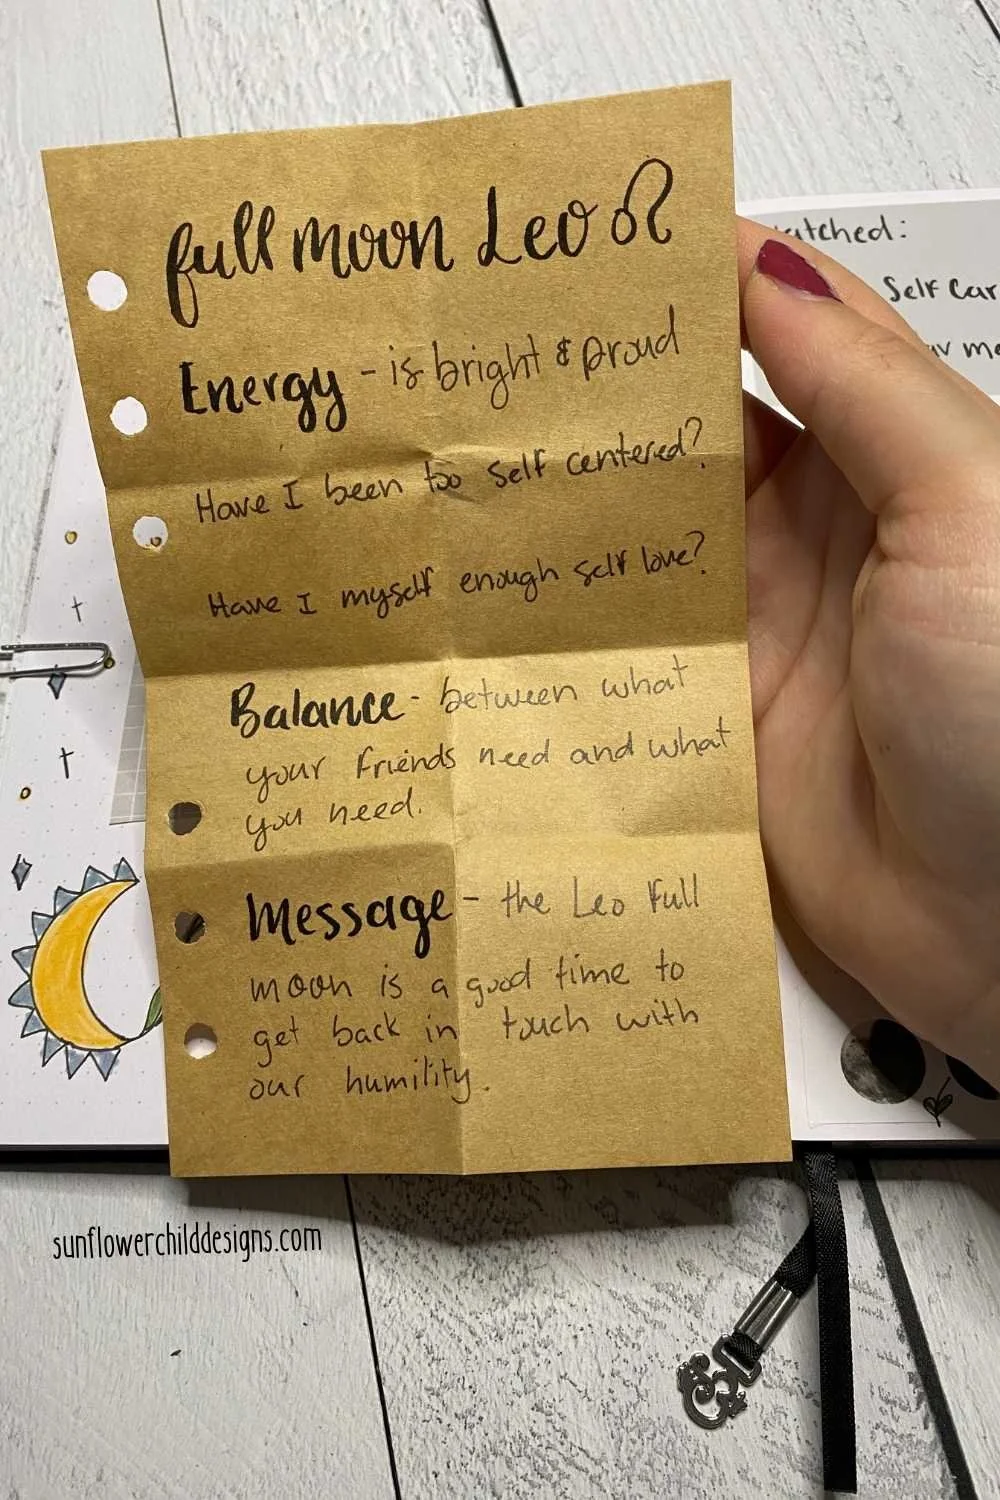 full moon Leo ♌
Energy - is bright & proud
Have I been too self centered?
Have I myself enough self love?
Balance - between what
your friends need and what
you need.
Message - the Leo full
moon is a good time to
get back in touch with
our humility.
Self
sunflowerchilddesigns.com